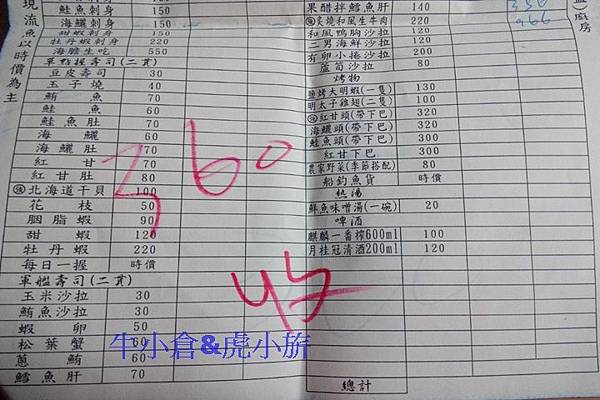 現流魚以時價為主
鮭魚刺身
海鱺刺身 150
甜蝦刺身 150
牡丹蝦刺身 220
海膽生吃 550
單點握壽司(二貫)
豆皮壽司 30
玉子燒 40
鮪魚 70
鮭魚 60
鮭魚肚 70
海鱺 60
海鱺肚 70
紅甘 70
紅甘肚 80
北海道干貝 100
花枝 50
胭脂蝦 90
甜蝦 120
牡丹蝦 220
每日一握 時價
軍艦壽司(二貫)
玉米沙拉 30
鮪魚沙拉 30
蝦卵 50
松葉蟹 60
蔥鮪 60
鱈魚肝 70
果醋拌鱈魚肝 140
炙燒和風生牛肉 220
和風鴨胸沙拉 120
二男海鮮沙拉 120
有卵小捲沙拉 200
蘆筍沙拉 80
烤物
鹽烤大明蝦(一隻) 130
明太子雞翅(二隻) 100
紅甘頭(帶下巴) 320
海鱺頭(帶下巴) 320
鮭魚頭(帶下巴) 300
紅甘下巴 300
農家野菜(季節搭配) 80
船釣魚貨 時價
熱湯
鮮魚味噌湯(一碗) 20
啤酒
麒麟一番榨600ml 100
月桂冠清酒200ml 120
總計
廚房
350
966
360
45
牛小倉&虎小旂